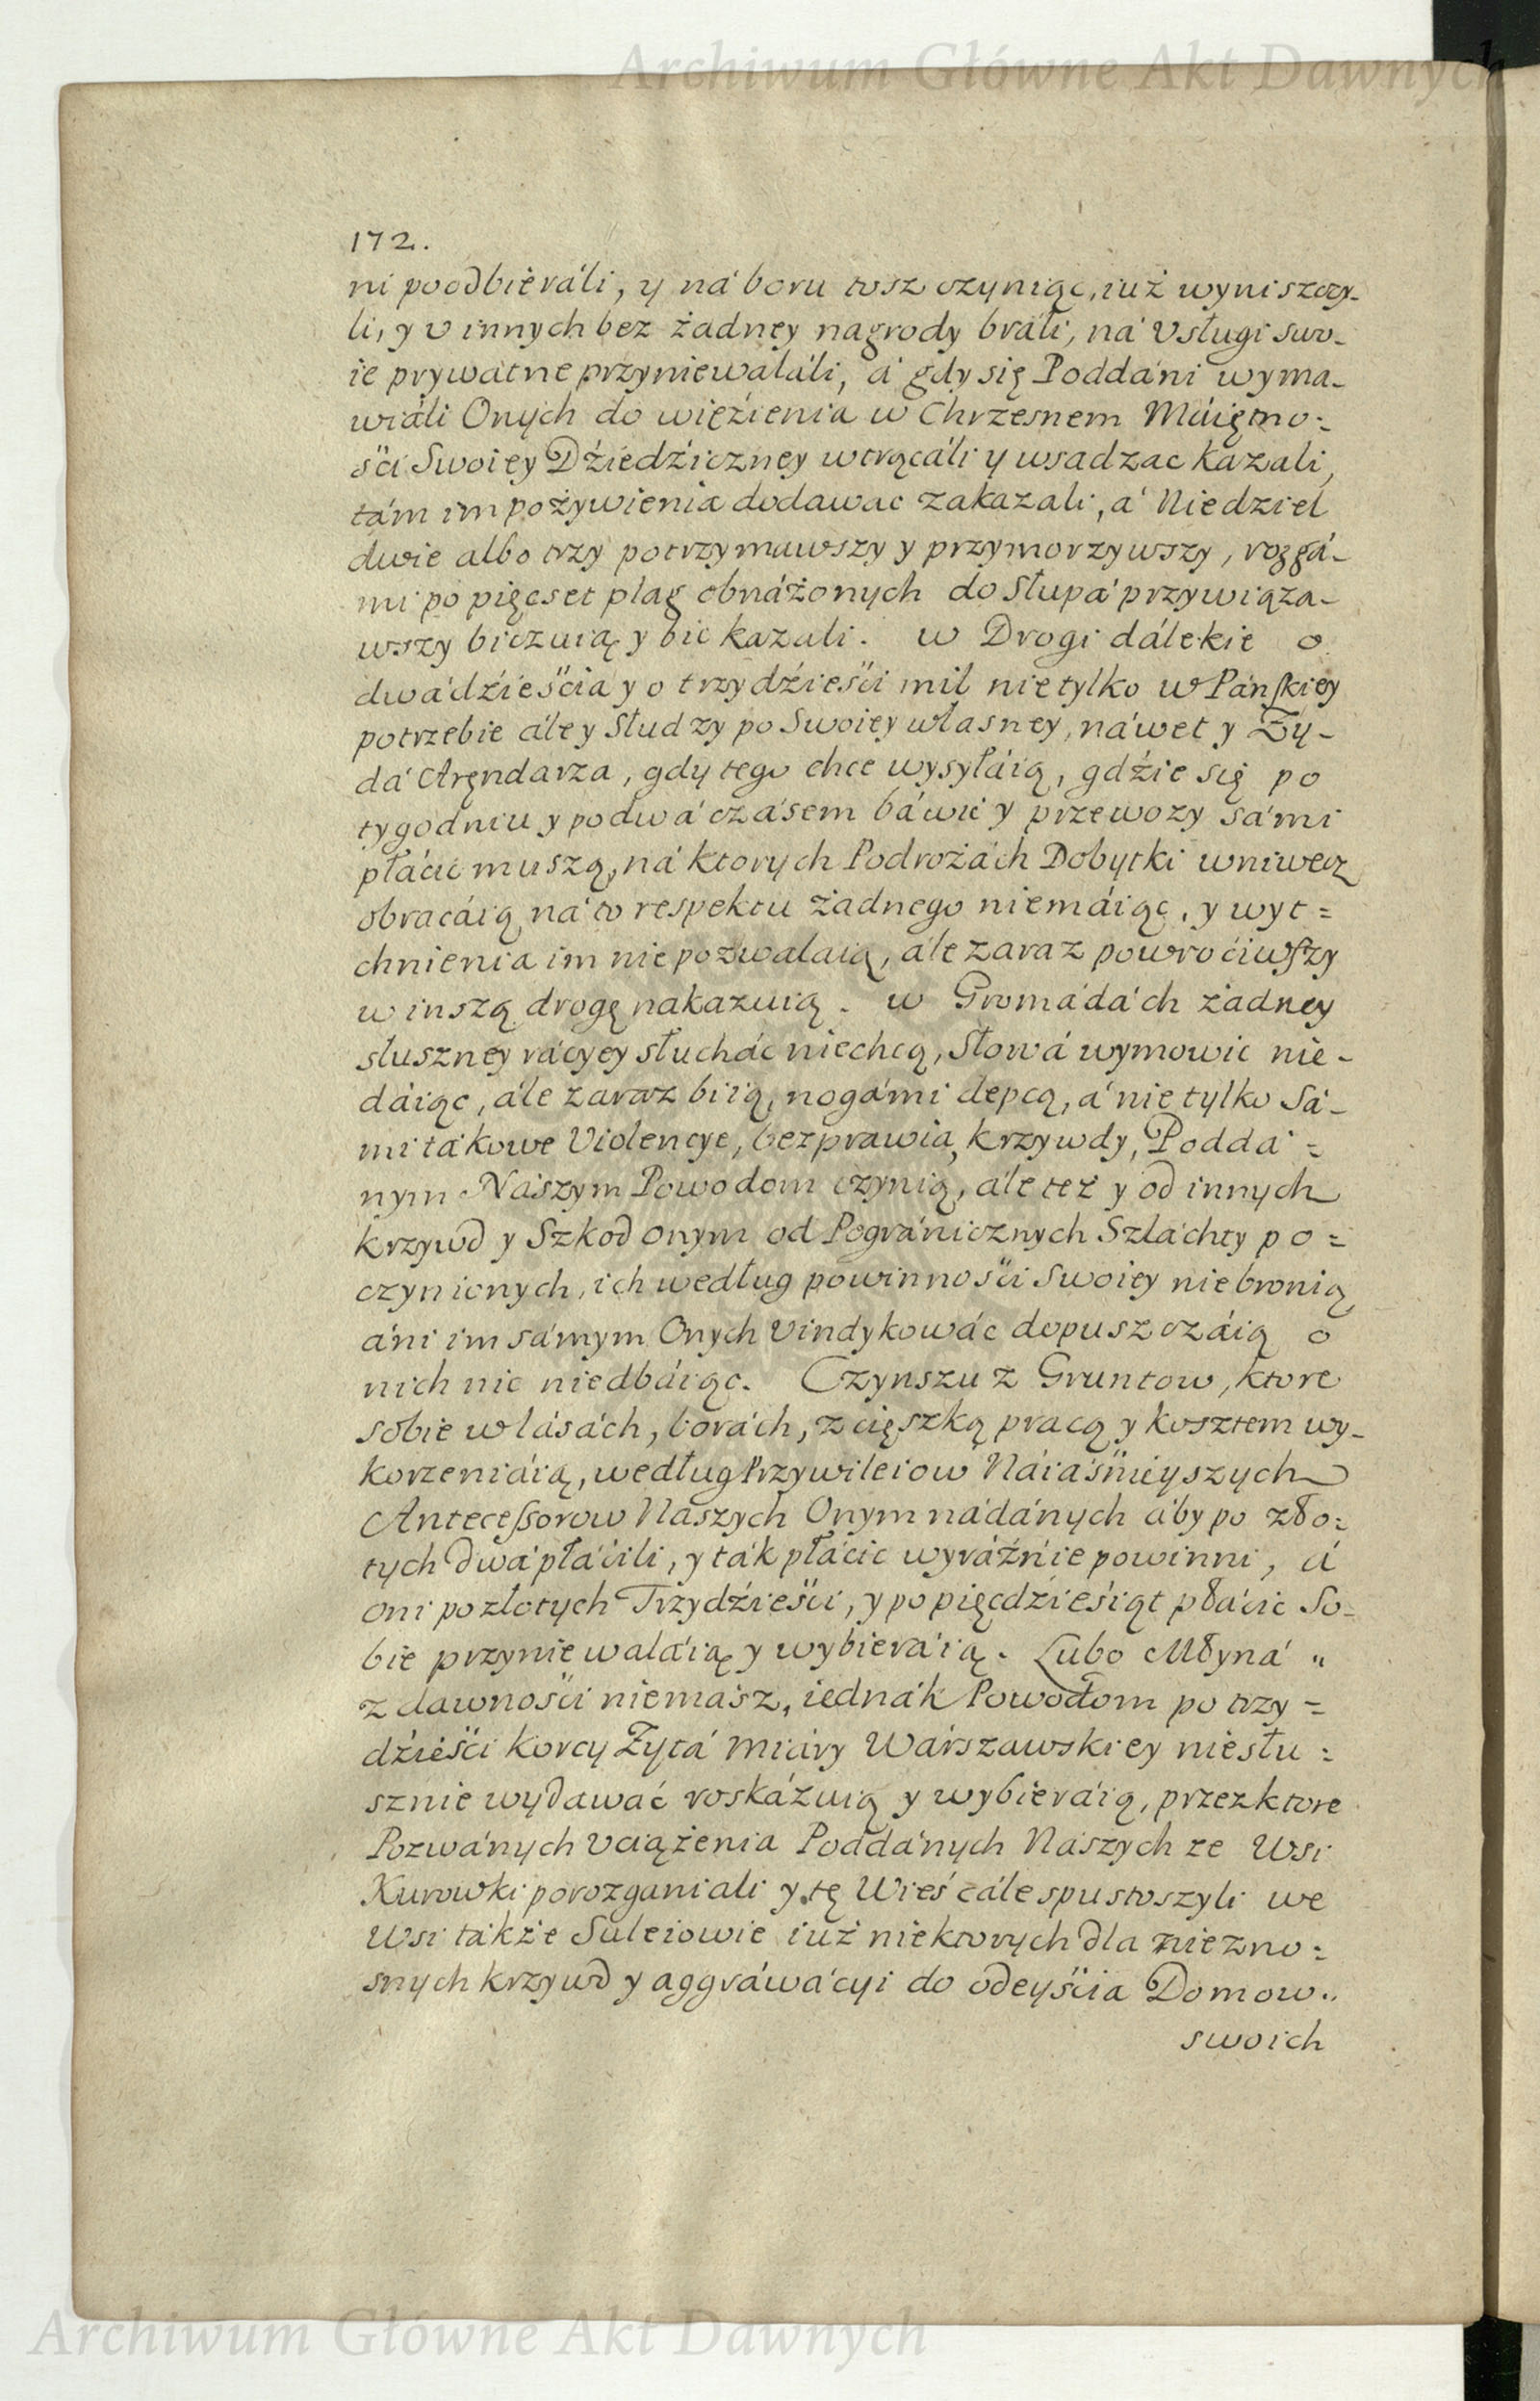 Archiwum Główne Akt Dawnych
172.
ni poodbieráli, y ná boru tosz czyniąc, iuż wyniszczy-
li, y v innych bez żadney nagrody bráli, ná Vsługi swo-
ie prywatne przyniewaláli, á gdy się Poddáni wyma-
wiáli Onych do więźienia w Chrzesnem Máiętno-
ści Swoiey Dźiedźiczney wtrącáli y wsadzac kazali,
tám im pożywienia dodawac zakazali, á Niedziel
dwie albo trzy potrzymawszy y przymorzywszy, rozgá-
mi po pięcset plag obnáżonych do Słupá przywiąza-
wszy biczuią y bic kazali. w Drogi dálekie o
dwádźieścia y o trzydźieści mil nie tylko w Pánskiey
potrzebie ále y Słudzy po Swoiey własney, náwet y Ży-
dá Aręndarza, gdy tego chce wysyłáią, gdźie się po
tygodniu y po dwá czásem báwić y przewozy sámi
płácic muszą, ná ktorych Podrożách Dobytki wniwecz
obracáią ná to respektu żadnego niemáiąc, y wyt=
chnienia im nie pozwalaią, ále zaraz powrociwszy
w inszą drogę nakazuią. w Gromádách żadney
słuszney rácyey słuchác niechcą, Słowá wymowic nie-
dáiąc, ále zaraz biią, nogámi depcą, á nie tylko Sá-
mi tákowe Violencye, bezprawia, krzywdy, Poddá=
nym Naszym Powodom czynią, ále też y od innych
krzywd y Szkod onym od Pogránicznych Szláchty po=
czynionych, ich według powinności Swoiey nie bronią
áni im sámym Onych vindykowác dopuszczáią o
nich nic niedbáiąc. Czynszu z Gruntow, ktore
sobie w lásách, borách, z cięszką pracą y kosztem wy-
korzeniáią, według Przywileiow Náiaśnieyszych
Antecessorow Naszych Onym nádánych áby po zło=
tych dwá płácili, y ták płácic wyráźnie powinni, á
oni po złotych Trzydźieści, y po pięcdźieśiąt płácic So-
bie przyniewaláią y wybieráią. Lubo Młyná "
z dawności niemász, iednák Powodom po trzy=
dźieści korcy Żytá miáry Wárszawskiey niesłu=
sznie wydawać roskázuią y wybieráią, przez ktore
Pozwánych vciążenia Poddánych Nászych ze Wsi
Kurowki porozganiali y tę Wieś cále spustoszyli we
Wsi także Suleiowie iuż niektorych dla niezno=
snych krzywd y aggráwácyi do odeyścia Domow"
swoich
Archiwum Główne Akt Dawnych